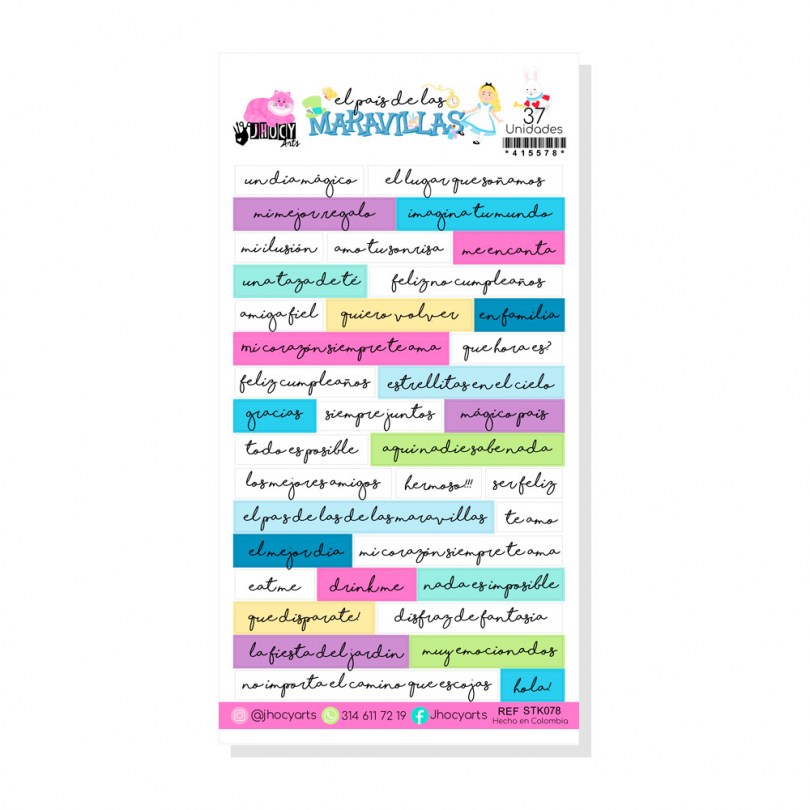 el pais de las
MARAVILLAS
JHOCY
Arts
37
Unidades
*415578*
un dia mágico el lugar que soñamos
mi mejor regalo imagina tu mundo
mi ilusión amo tu sonrisa me encanta
una taza de té feliz no cumpleaños
amiga fiel quiero volver en familia
mi corazón siempre te ama que hora es?
feliz cumpleaños estrellitas en el cielo
gracias siempre juntos mágico pais
todo es posible aqui nadie sabe nada
los mejores amigos hermoso!!! ser feliz
el pas de las de las maravillas te amo
el mejor dia mi corazón siempre te ama
eat me drink me nada es imposible
que disparate! disfraz de fantasia
la fiesta del jardin muy emocionados
no importa el camino que escojas hola!
@jhocyarts 314 611 72 19 Jhocyarts REF STK078
Hecho en Colombia